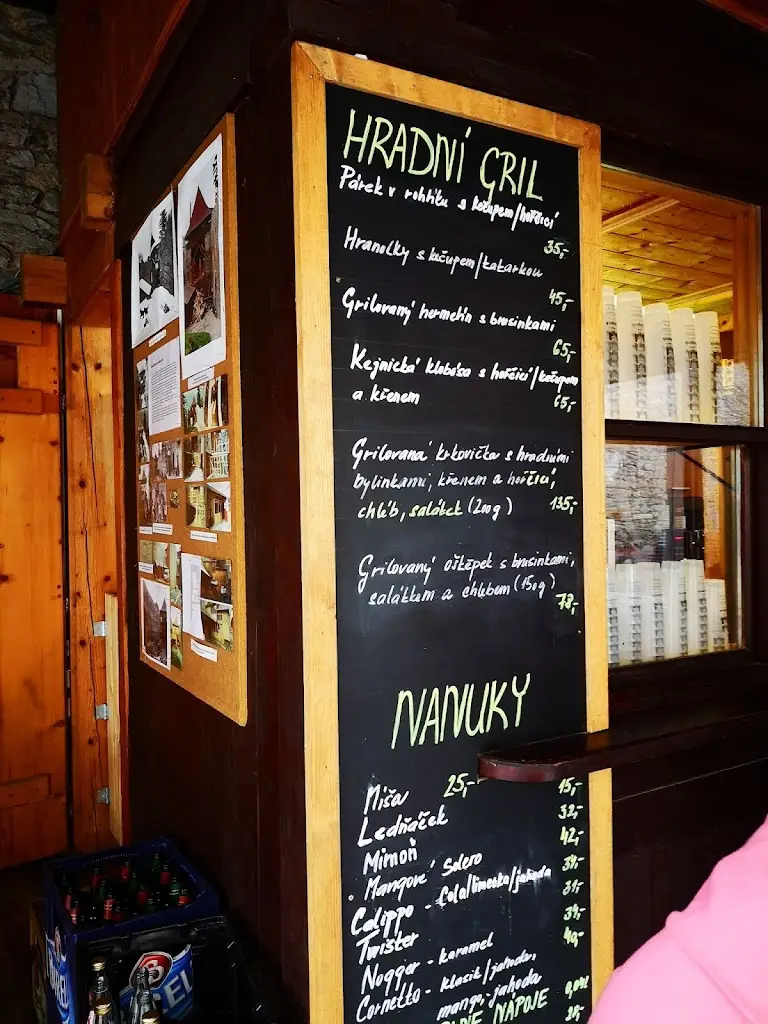 HRADNÍ GRIL
Párek v rohlíku s kečupem/hořčicí
35,-
Hranolky s kečupem/tatarkou
45,-
Grilovaný hermelín s brusinkami
65,-
klobása s hořčicí/kečupem
a křenem 65,-
Grilovaná krkovička s hradními
bylinkami, křenem a hořčicí,
chléb, salátek (200g) 135,-
Grilovaný oštěpek s brusinkami,
salátkem a chlebem (150g)
78,-
NANUKY
Míša 25,- 15,-
Ledňáček 32,-
Mimoň 42,-
Mangové Solero
Calippo - Cola/limetka/jahoda
Twister
Nogger - karamel
Cornetto - klasik/jahoda,
mango, jahoda
NÁPOJE